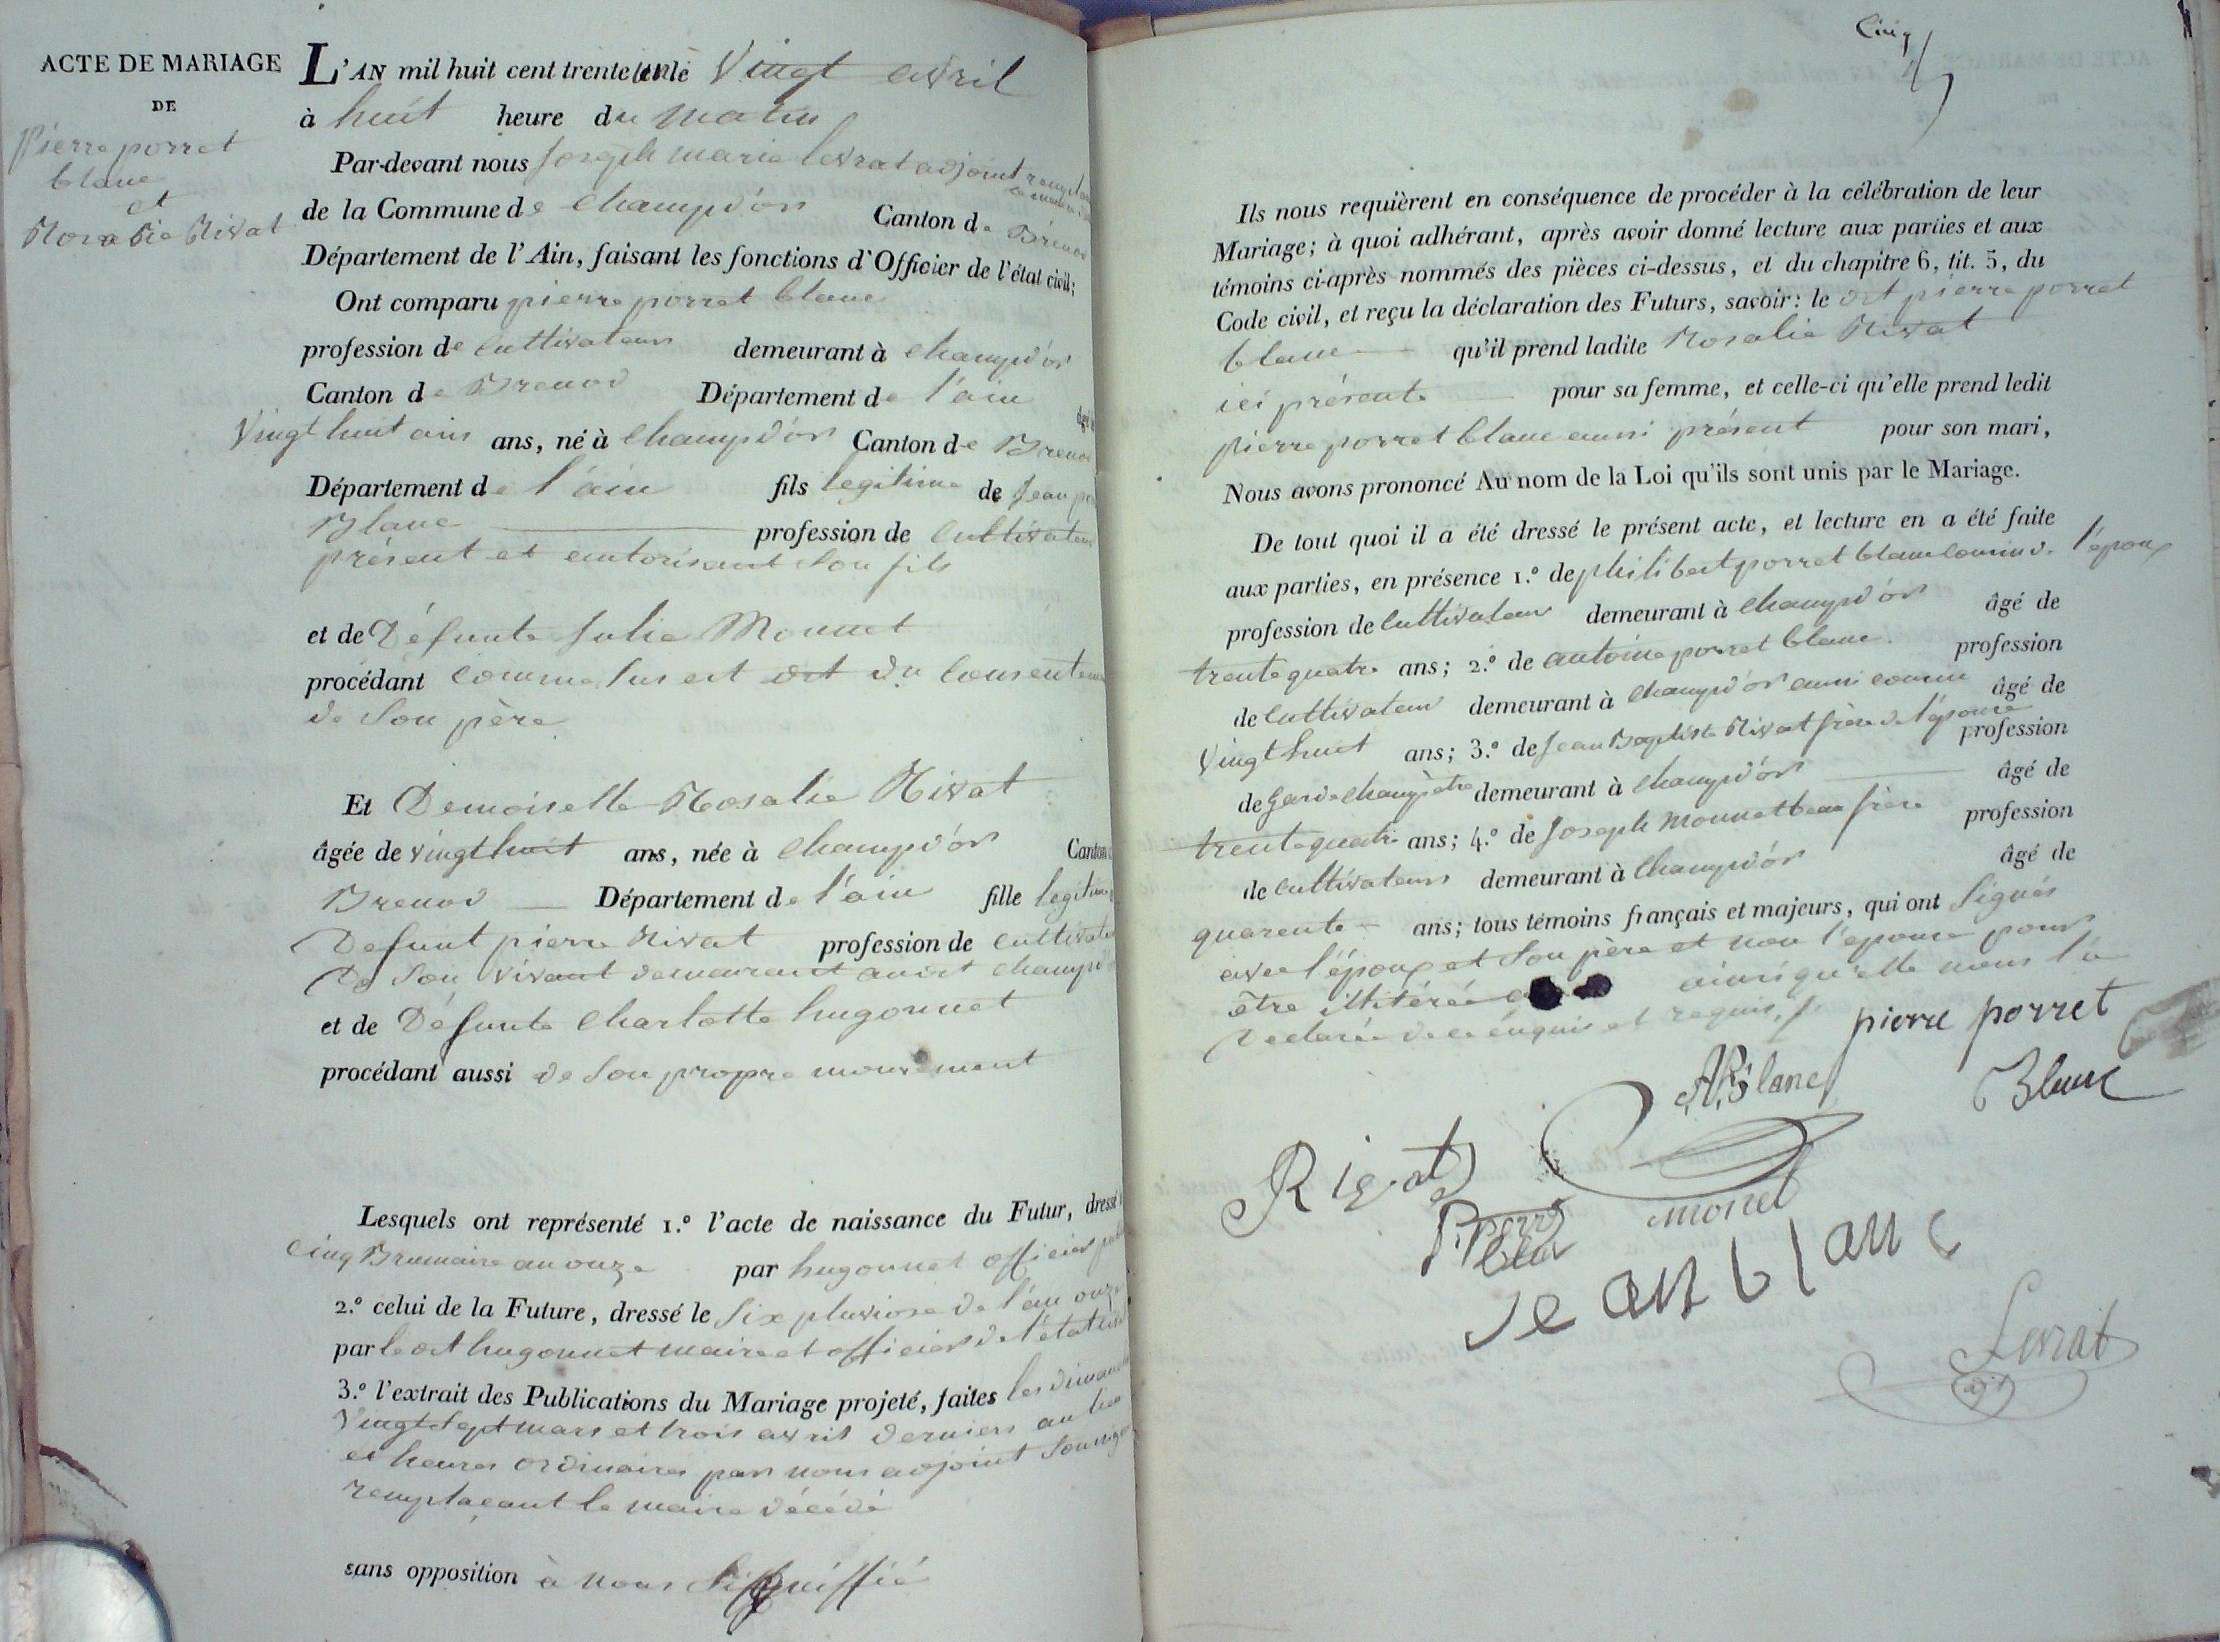 ACTE DE MARIAGE
DE
Pierre porret
blanc
et
Rosalie Rivat
L'AN mil huit cent trente un le Vingt avril
à huit heure du matin
Par-devant nous Joseph marie levrat adjoint
de la Commune de champd'or Canton de Brenod
Département de l'Ain, faisant les fonctions d'Officier de l'état civil;
Ont comparu pierre porret blanc
profession de cultivateur demeurant à champd'or
Canton de Brenod Département de l'ain
Vingt huit ans ans, né à champd'or Canton de Brenod
Département de l'ain fils legitime de Jean
Blanc profession de cultivateur
présent et autorisant son fils
et de Défunte Julie Monnet
procédant comme lus est dit du consentement
de son père
Et Demoiselle Rosalie Rivat
âgée de vingt huit ans, née à champd'or Canton
Brenod Département de l'ain fille legitime
Defunt pierre Rivat profession de cultivateur
De son vivant demeurant audit champd'or
et de Défunte charlotte hugonnet
procédant aussi de son propre mouvement
Lesquels ont représenté 1.º l'acte de naissance du Futur, dressé
cinq Brumaire an onze par hugonnet officier
2.º celui de la Future, dressé le Six pluviose de l'an onze
par le dit hugonnet maire et officier de l'état civil
3.º l'extrait des Publications du Mariage projeté, faites les dimanches
Vingt sept mars et trois avril derniers au lieu
et heures ordinaires par nous adjoint soussigné
remplaçant le maire décédé
sans opposition à nous signiffiée
Cinq
5
Ils nous requièrent en conséquence de procéder à la célébration de leur
Mariage; à quoi adhérant, après avoir donné lecture aux parties et aux
témoins ci-après nommés des pièces ci-dessus, et du chapitre 6, tit. 5, du
Code civil, et reçu la déclaration des Futurs, savoir: le dit pierre porret
blanc qu'il prend ladite Rosalie Rivat
ici présente pour sa femme, et celle-ci qu'elle prend ledit
pierre porret blanc aussi présent pour son mari,
Nous avons prononcé Au nom de la Loi qu'ils sont unis par le Mariage.
De tout quoi il a été dressé le présent acte, et lecture en a été faite
aux parties, en présence 1.º de philibert porret blanc cousin de l'époux
profession de cultivateur demeurant à champd'or âgé de
trente quatre ans; 2.º de antoine porret blanc profession
de cultivateur demeurant à champd'or aussi cousin âgé de
Vingt huit ans; 3.º de Jean Baptiste Rivat frère de l'épouse profession
de garde champètre demeurant à champd'or âgé de
trente quatre ans; 4.º de Joseph monnet beau frère profession
de cultivateur demeurant à champd'or âgé de
quarente ans; tous témoins français et majeurs, qui ont signés
avec l'époux et son père et non l'epouse pour
être illitérée ainsi qu'elle nous l'a
declarée de ce enquis et requis
pierre porret
Blanc
A,P,Blanc
Rivat
monet
P. Porret
blan
Jean blanc
Levrat
adjt